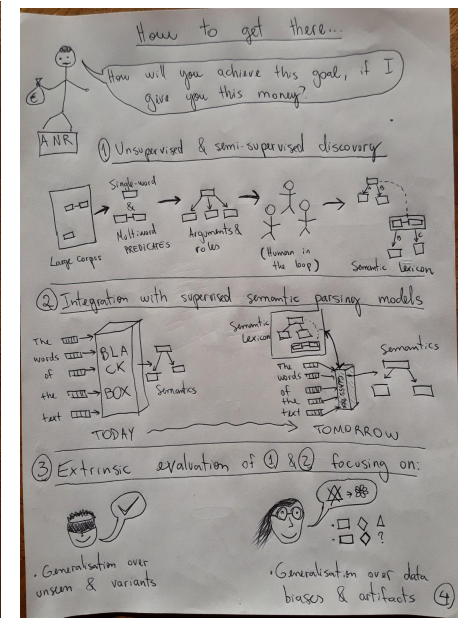 How to get there...
How will you achieve this goal, if I
give you this money?
€
ANR
① Unsupervised & semi-supervised discovery
Single-word
&
Multiword
PREDICATES
Arguments &
roles
(Human in
the loop)
Large Corpus
Semantic Lexicon
② Integration with supervised semantic parsing models
The
words
of
the
text
BLA
CK
BOX
Semantics
Semantic
Lexicon
The
words
of
the
text
Semantics
TODAY
TOMORROW
③ Extrinsic evaluation of ① & ② focusing on:
• Generalisation over
unseen & variants
?
• Generalisation over data
biases & artifacts
④